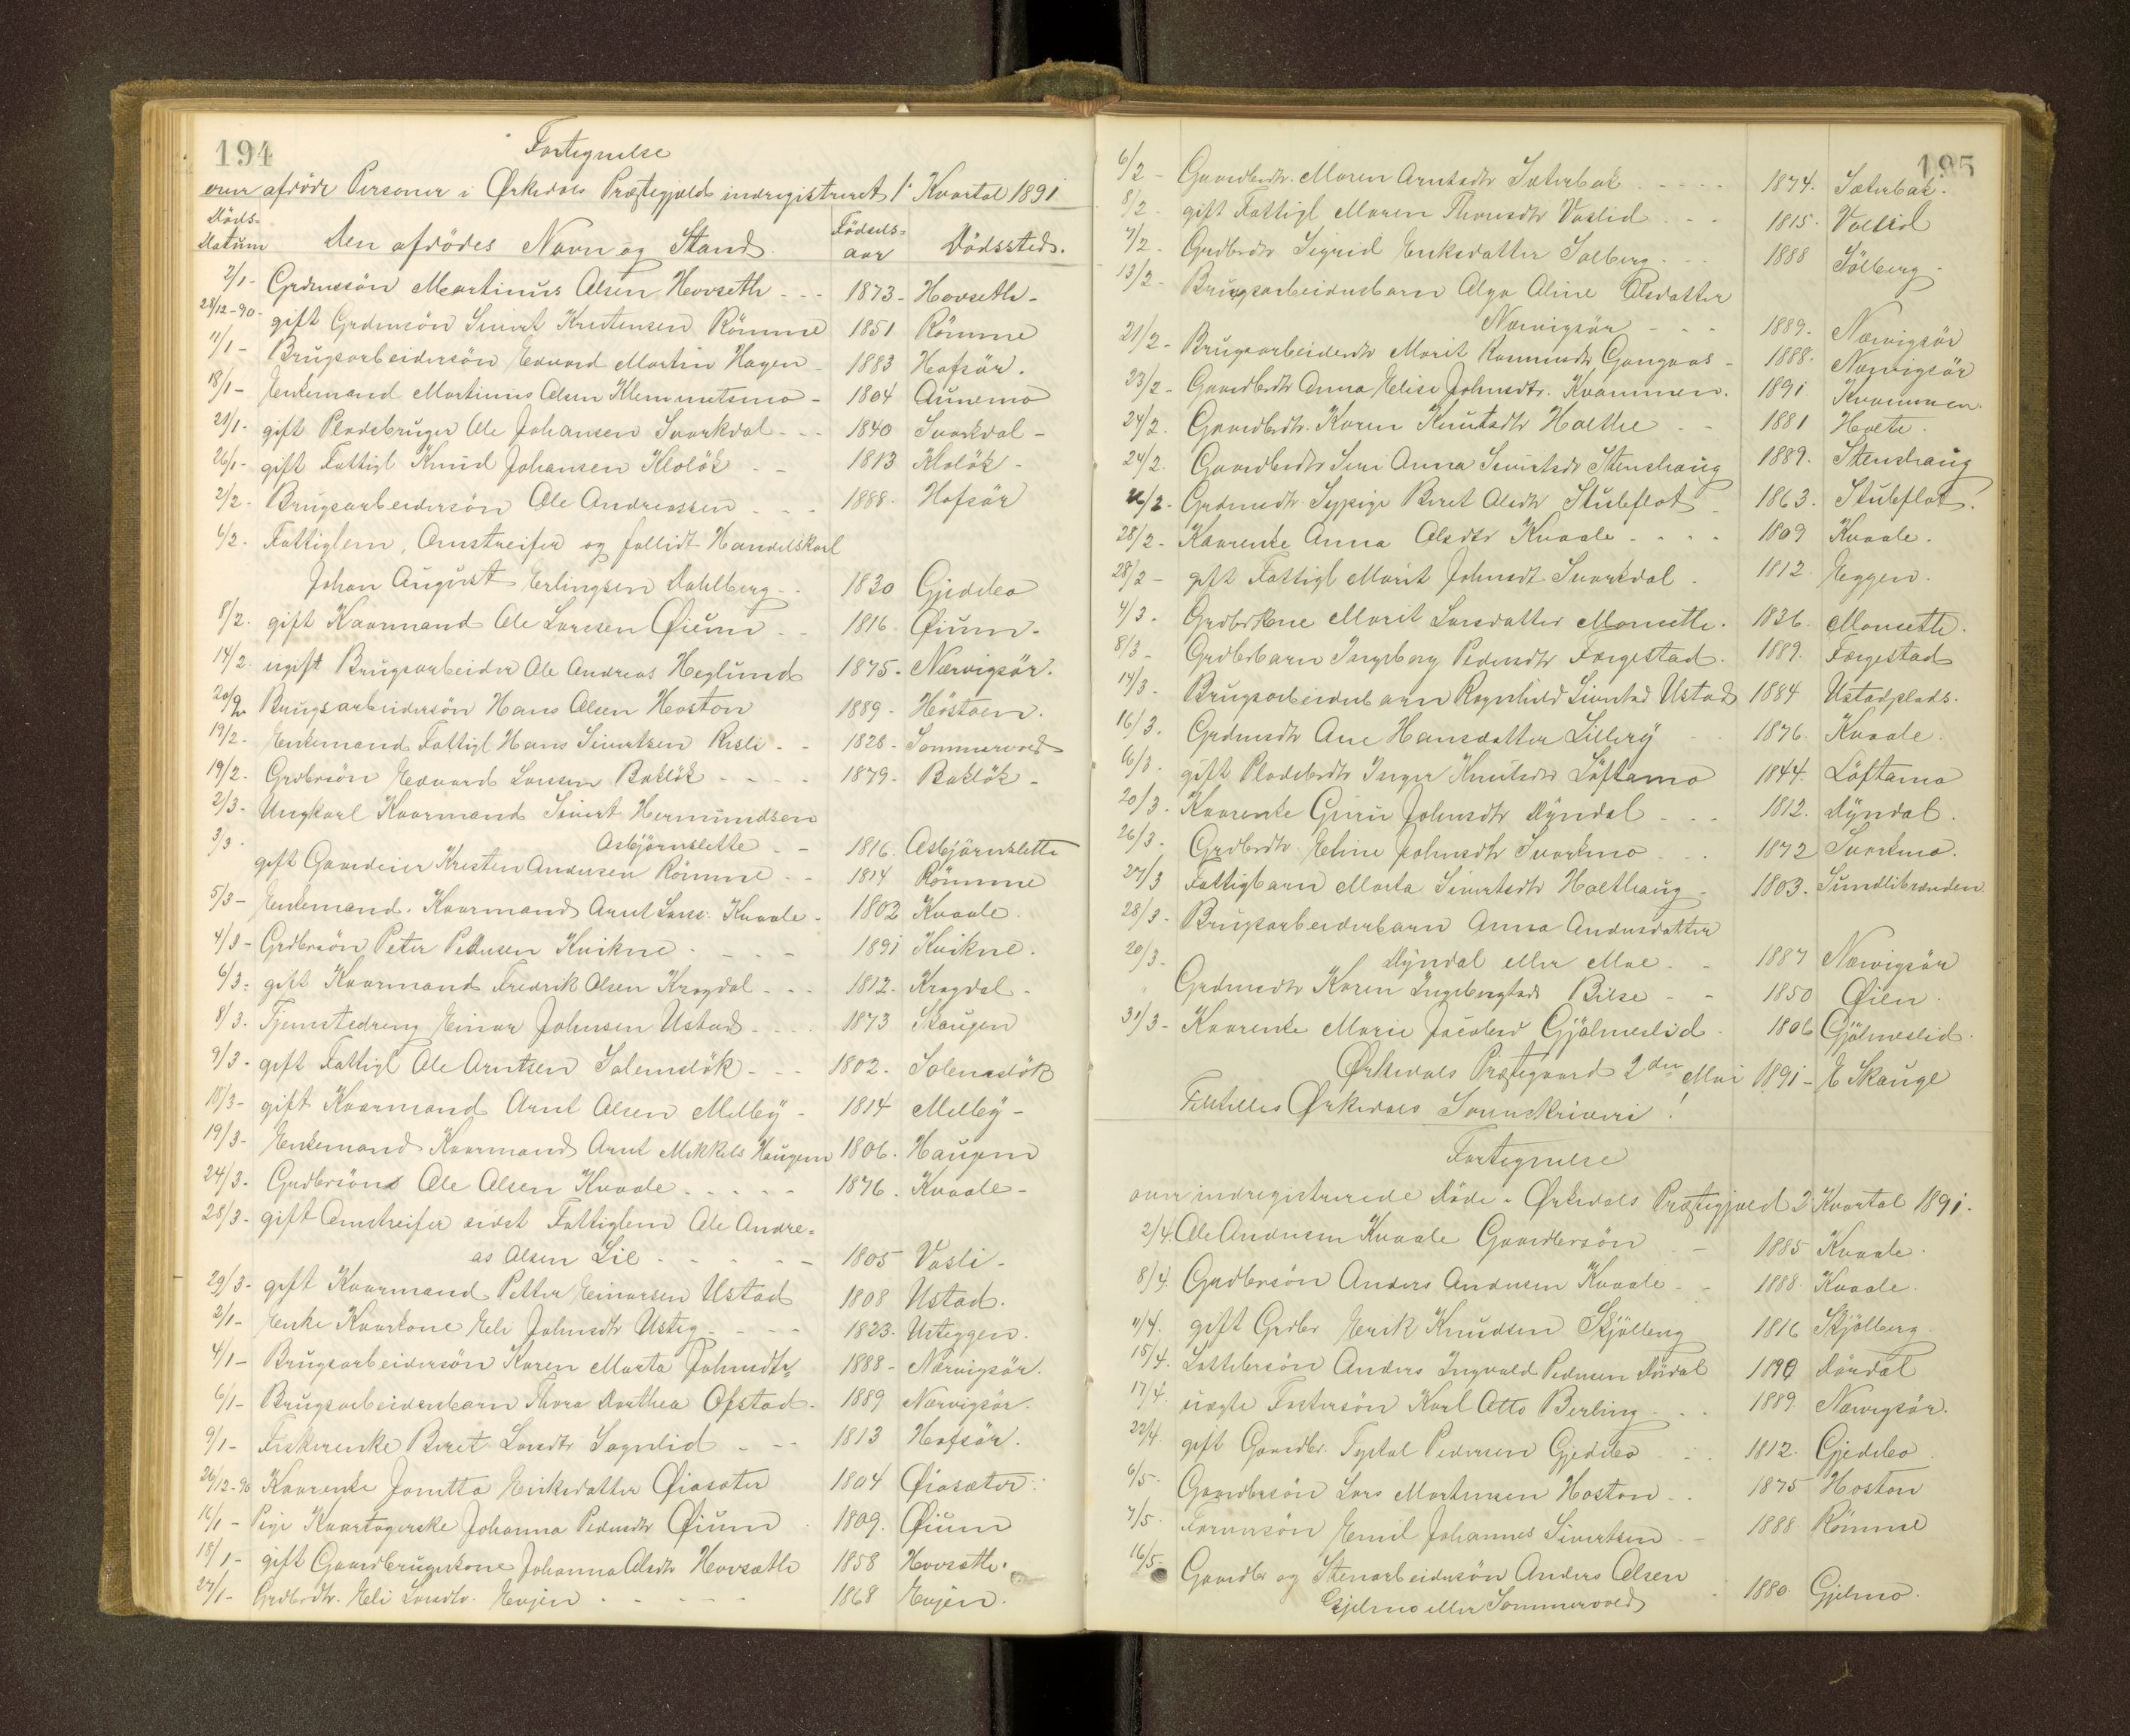 194
Fortegnelse
over afdöde Personer i Ørkedals Præstegjæld indregistreret 1' Kvartal 1891
Döds- Datum Den afdödes Navn og Stand. Födsels= aar Dödssted.
2/1- Grdmsön Martinus Olsen Hovseth - - - 1873- Hovseth-
28/12-90- gift Grdmsön Sivert Kristensen Römme 1851 Römme
11/1- Brugsarbeidersön Edvard Martin Hagen - 1883 Hofsör.
18/1- Enkemand Martinus Olsen Klemmetsmo - 1804 Aunemo
21/1- gift Pladsbruger Ole Johansen Svorkdal - - - 1840 Svorkdal -
26/1- gift Fattigl Knud Johansen Kloløk - - 1813 Kloløk -
2/2- Brugsarbeidersön Ole Andreassen - - - 1888. Hofsör
6/2- Fattiglem, Omstreifer og fallidt Handelskarl
Johan August Erlingsen Dahlberg - - 1830 Gjedebo
8/2. gift Kaarmand Ole Larsen Øium - - 1816 Øium-
14/2. ugift Brugsarbeider Ole Andreas Heglund 1875- Nærvigsör.
20/2 Brugsarbeidersön Hans Olsen Hoston 1889- Höstoen.
19/2- Enkemand Fattigl Hans Sivertsen Risli - - 1828- Sommervold
19/2- Grdbrsön Edvard Larsen Bakløk - - - - 1879- Bakløk -
2/3- Ungkarl Kaarmand Sivert Hermundsen
3/3- Asbjörnslette - - 1816. Asbjörnslette
gift Gaardeier Kristen Andersen Römme - - 1814 Römme
5/3- Enkemand. Kaarmand Arnt Larss. Kvaale - 1802 Kvaale.
4/3- Grdbrsön Peter Pedersen Kvikne - - - - 1891 Kvikne.
6/3- gift Kaarmand Fredrik Olsen Kragdal - - - 1812- Kragdal -
8/3- Tjenestedreng Einar Johnsen Ustad - - - - 1873 Skaugen
9/3- gift Fattigl Ole Arntsen Solemsløk - - - 1802. Solemsløk
18/3- gift Kaarmand Arnt Olsen Melby - 1814 Melby -
19/3- Enkemand Kaarmand Arnt Mikkels Haugen 1806. Haugen
24/3- Grdbrsön Ole Olsen Kvaale - - - - - 1876. Kvaale -
28/3- gift Omstreifer sidst Fattiglem Ole Andre=
as Olsen Lie - - - - - - 1805 Vasli -
29/3- gift Kaarmand Petter Einarsen Ustad 1808 Ustad.
2/1- Enke Kaarkone Eli Johnsdtr Usteg - - - - 1823. Usteggen.
4/1- Brugsarbeidersön Karen Marta Johnsdtr 1888- Nærvigsör.
6/1- Brugsarbeiderbarn Thora Dorthea Ofstad - 1889 Nærvigsör.
9/1- Fiskerenke Beret Larsdtr Sognlid - - - 1813 Hofsör.
26/12-90 Kaarenke Jonetta Eriksdatter Øiasæter 1804 Øiasæter:
16/1- Pige Kaartagerske Johanna Pedersdtr Øium 1809. Øium
18/1- gift Gaardbrugerkone Johanna Olsdtr Hovsæth 1858 Hovsæth.
27/1- Grdbrdtr. Eli Larsdtr. Evjen - - - - - - 1868 Evjen.
195
6/2- Gaardbrdtr. Maren Arntsdtr Sæterbak - - - - 1874. Sæterbak.
8/2. gift Fattigl Maren Thomsdtr Vaslid - - - 1815. Vaslid
7/2- Grdbrdtr Sigrid Eriksdatter Solberg - - - 1888 Sölberg -
13/2- Brugsarbeidersbarn Olga Oline Olsdatter
Nærvigsör - - - 1889- Nærvigsör
21/2- Brugsarbeiderdtr Marit Rasmusdtr Gangaas - 1888. Nærvigsör
23/2- Gaardbrdtr Anna Elise Johnsdtr. Kvammen. 1891 Kvammen.
24/2. Gaardbrdtr. Karen Knutsdtr Holthe - - 1881 Holte.
24/2. Gaardbrdtr Anna Sivertsdr Stenshaug 1889. Stenshaug
26/2- Grdmsdtr. Sypige Beret Olsdtr Stubeflot - 1863. Stubeflot.
28/2- Kaarenke Anna Olsdtr Kvaale - - - - 1809 Kvaale.
28/2- gift Fattigl Marit Johnsdt Svorkdal - 1812. Eggen.
4/3- Grdbrkone Marit Larsdatter Monsethe. 1836. Monsethe.
8/3- Grdbrbarn Ingeborg Pedersdtr Forgestad. 1889. Forgestad
14/3- Brugsarbeiderbarn Ragnhild Sivertsd Ustad 1884 Ustadplads.
16/3. Grdmsdtr Ane Hansdatter Lillery - - 1876. Kvaale.
16/3- gift Pladsbrdtr Inger Knutsdtr Löftamo 1844. Löftamo
20/3- Kaarenke Guru Johnsdtr Dyndal - - - 1812. Dyndal.
26/3- Grdbrdtr. Eline Johnsdtr Svorkmo - - - 1872 Svorkmo.
27/3 Fattigbarn Marta Sivertsdtr Holthaug - 1803. Sundlibrenden
28/3- Brugsarbeiderbarn Anna Andersdatter
20/3- Dyndal eller Moe - - 1887 Nærvigsör
Grdmsdtr Karen Ingebrigtsdr Bilse - - 1850 Øien.
31/3- Kaarenke Marie Jacobsd Gjölmeslid - 1806 Gjölmeslid.
Ørkedals Præstegaard 2den Mai 1891- E Skauge
Tilstilles Ørkedals Sorenskriveri!
Fortegnelse
over indregistrerede Döde i Ørkedals Præstegjæld 2' Kvartal 1891.
2/4. Ole Andersen Kvaale Gaardbrsön - 1885 Kvaale.
8/4. Grdbrsön Anders Andersen Kvaale - - 1888. Kvaale.
11/4. gift Grdbr Erik Knudsen Skjölberg 1816 Skjölberg
15/4. Anders Ingvald Pedersen Dördal 1890 Dördal
17/4. uægte Karl Otto Berling - - - 1889. Nærvigsör.
22/4. gift Gaardbr. Tystol Pedersen Gjedebo - - 1812. Gjedebo
6/5- Gaardbrsön Lars Martinsen Hoston - - 1875 Hoston
7/5- Emil Johannes Sivertsen - - 1888. Römme
16/5- Gaardbr og Stenarbeidersön Anders Olsen
Gjelmo eller Sommervold - 1880. Gjelmo.